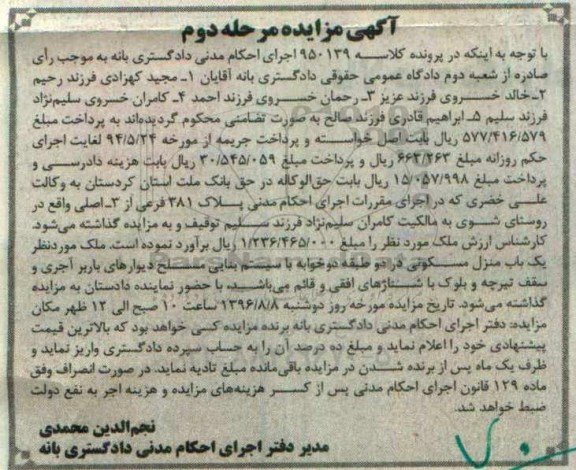 آگهی مزایده مرحله دوم
با توجه به اینکه در پرونده کلاسه ۹۵۰۱۳۹ اجرای احکام مدنی دادگستری بانه به موجب رأی
صادره از شعبه دوم دادگاه عمومی حقوقی دادگستری بانه آقایان ۱ـ مجید کهزادی فرزند رحیم
۲ـ خالد خسروی فرزند عزیز ۳ـ رحمان خسروی فرزند احمد ۴ـ کامران خسروی سلیم‌نژاد
فرزند سلیم ۵ـ ابراهیم قادری فرزند صالح به صورت تضامنی محکوم گردیده‌اند به پرداخت مبلغ
۵۷۷/۴۱۶/۵۷۹ ریال بابت اصل خواسته و پرداخت جریمه از مورخه ۹۴/۵/۲۴ لغایت اجرای
حکم روزانه مبلغ ۶۶۳/۲۶۳ ریال و پرداخت مبلغ ۳۰/۵۴۵/۰۵۹ ریال بابت هزینه دادرسی و
پرداخت مبلغ ۱۵/۰۵۷/۹۹۸ ریال بابت حق‌الوکاله در حق بانک ملت استان کردستان به وکالت
علی خضری که در اجرای مقررات اجرای احکام مدنی پلاک ۳۸۱ فرعی از ۳ـ اصلی واقع در
روستای شوی به مالکیت کامران سلیم‌نژاد فرزند سلیم توقیف و به مزایده گذاشته می‌شود.
کارشناس ارزش ملک مورد نظر را مبلغ ۱/۲۳۶/۴۶۵/۰۰۰ ریال برآورد نموده است. ملک موردنظر
یک باب منزل مسکونی در دو طبقه دوخوابه با سیستم بنایی مسلح دیوارهای باربر آجری و
سقف تیرچه و بلوک با شناژهای افقی و قائم می‌باشد، با حضور نماینده دادستان به مزایده
گذاشته می‌شود. تاریخ مزایده مورخه روز دوشنبه ۱۳۹۶/۸/۸ ساعت ۱۰ صبح الی ۱۲ ظهر مکان
مزایده: دفتر اجرای احکام مدنی دادگستری بانه برنده مزایده کسی خواهد بود که بالاترین قیمت
پیشنهادی خود را اعلام نماید و مبلغ ده درصد آن را به حساب سپرده دادگستری واریز نماید و
ظرف یک ماه پس از برنده شدن در مزایده باقی‌مانده مبلغ تادیه نماید. در صورت انصراف وفق
ماده ۱۲۹ قانون اجرای احکام مدنی پس از کسر هزینه‌های مزایده و هزینه اجر به نفع دولت
ضبط خواهد شد.
نجم‌الدین محمدی
مدیر دفتر اجرای احکام مدنی دادگستری بانه